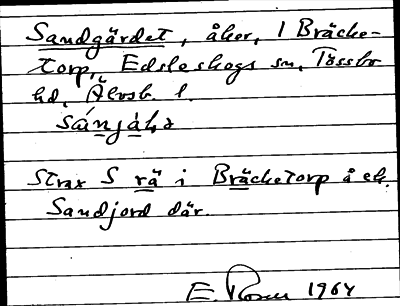 Sandgärdet, åker, 1 Bräcke-
torp, Edsleskogs sn, Tössbo
hd, Älvsb. l.
Strax S rä i Bräcketorp å ek.
Sandjord där.
E. Rosén 1964